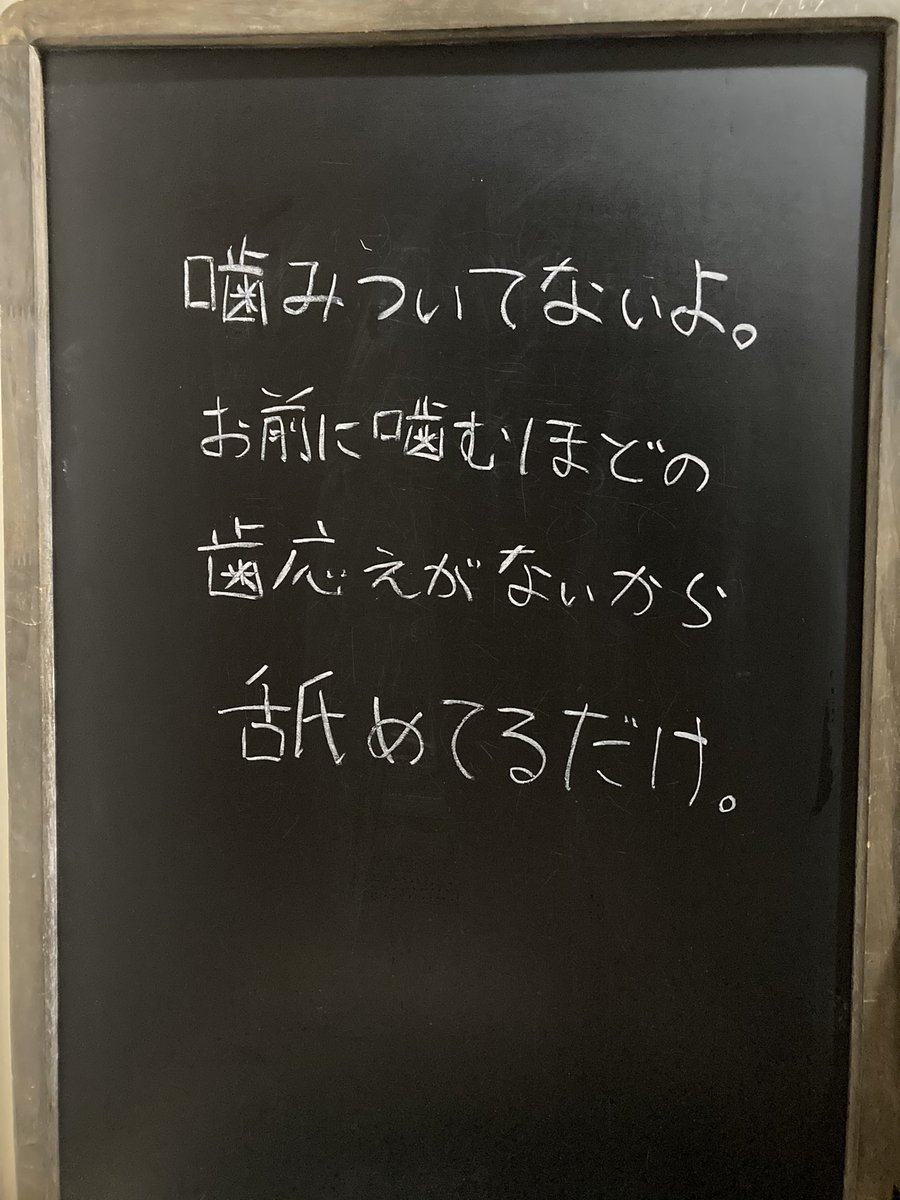 噛みついてないよ。
お前に噛むほどの
歯応えがないから
舐めてるだけ。